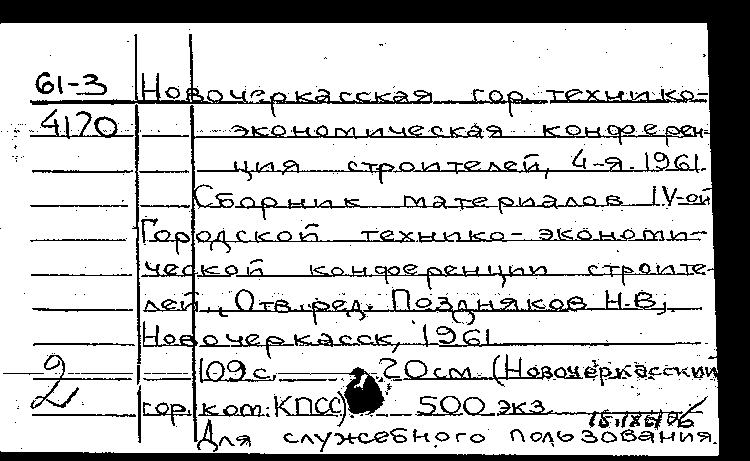 61-3 Новочеркасская гор. технико-
4170 экономическая конферен-
ция строителей, 4-я. 1961.
Сборник материалов IV-ой
Городской технико-экономи-
ческой конференции строите-
лей. Отв. ред. Поздняков Н.В.,
Новочеркасск, 1961
2 109 с. 20 см. (Новочеркасский
гор. ком. КПСС) 500 экз.
Для служебного пользования.